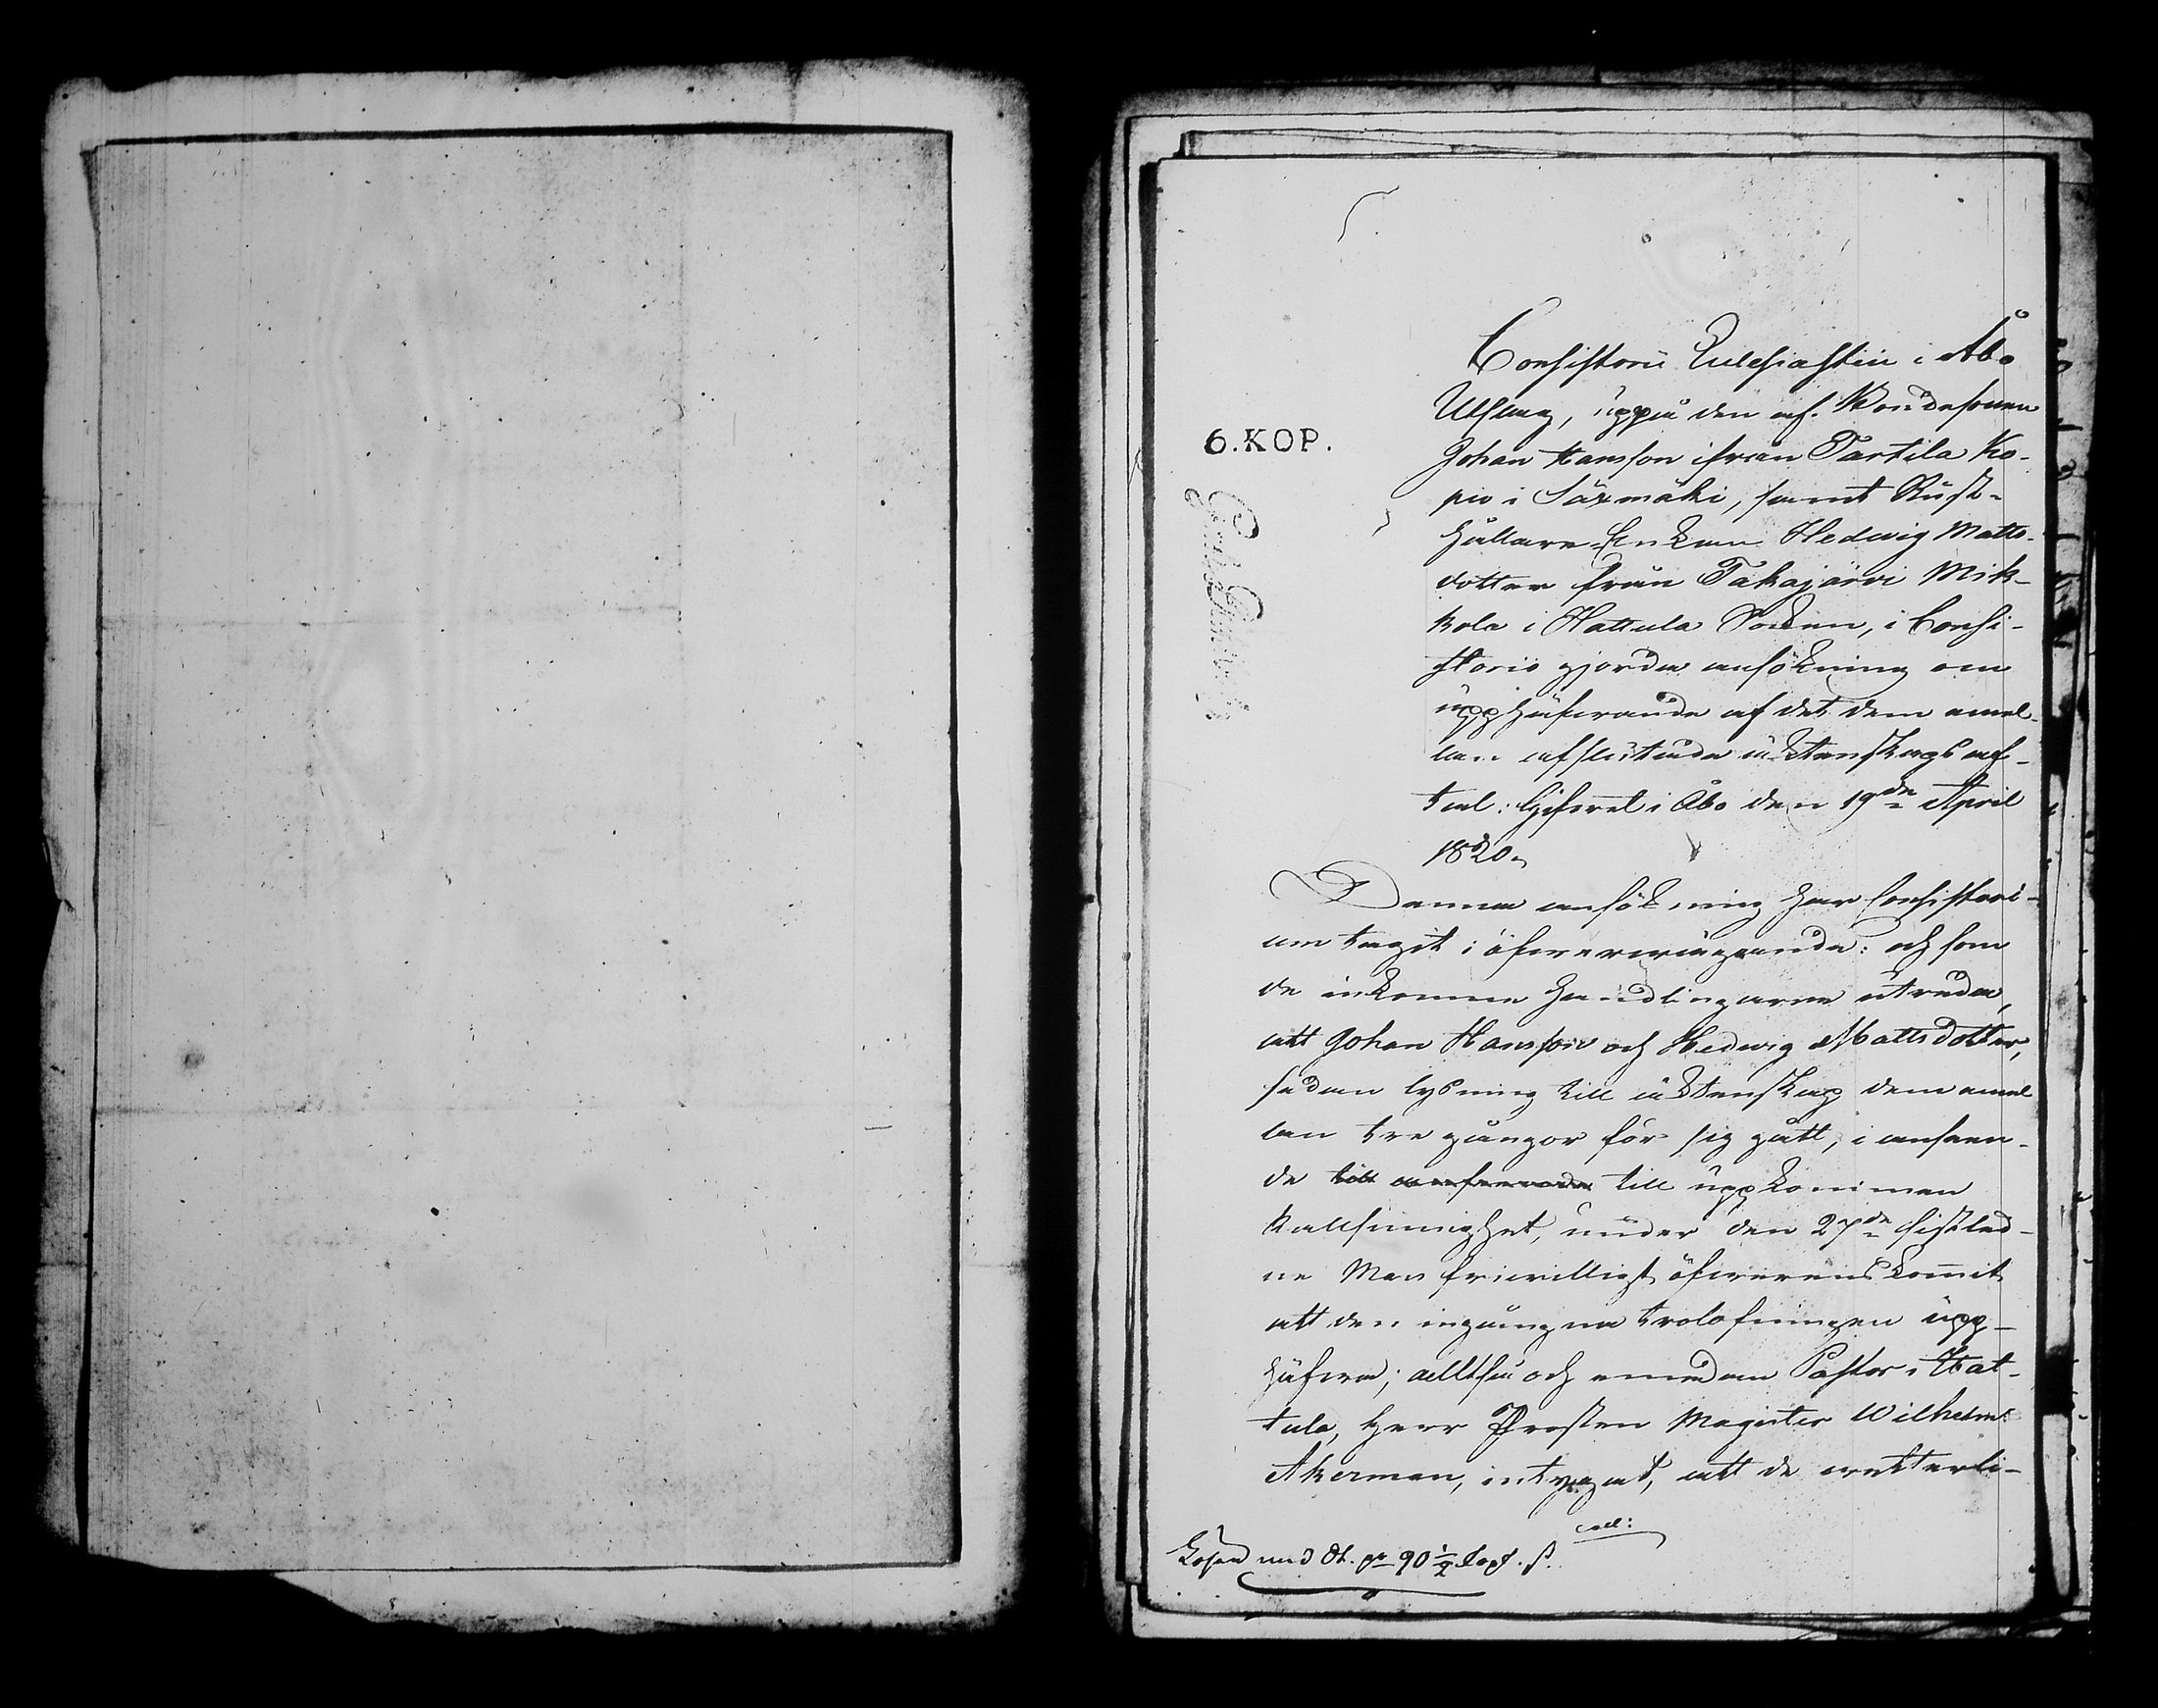 Consistorii Ecclesiastici i Åbo
Utslag, uppå den af Bondesonen
Johan Hansson ifrån Tartila Ko-
pio i Säxmäki, samt Rust-
hållare Enkan Hedvig Matts-
dotter från Takajärvi Mik-
kola i Hattula Socken, i Consi-
storio gjorda ansökning om
upphäfvande af det dem emel-
lan afslutade äktenskaps af-
tal: Gifvet i Åbo den 19de April
1820.
6. KOP.
Denna ansökning har Consistori-
um tagit i öfvervägande: och som
de inkomne handlingarne utreda,
att Johan Hansson och Hedvig Mattsdotter,
sedan lysning till äktenskap dem emel
lan tre gångor för sig gått, i anseen-
de till anseende till uppkommen
kallsinnighet, under den 27de sistled-
ne Mars friwilligt öfverenskommit
att den ingångna trolofningen upp-
häfva; alltså och emedan Pastor i Hat-
tula, Herr Prosten Magister Wilhelm
Åkerman, intygat, att de wekterli-
coll:
Lösen med St. pr 90 1/2 Kop. S.